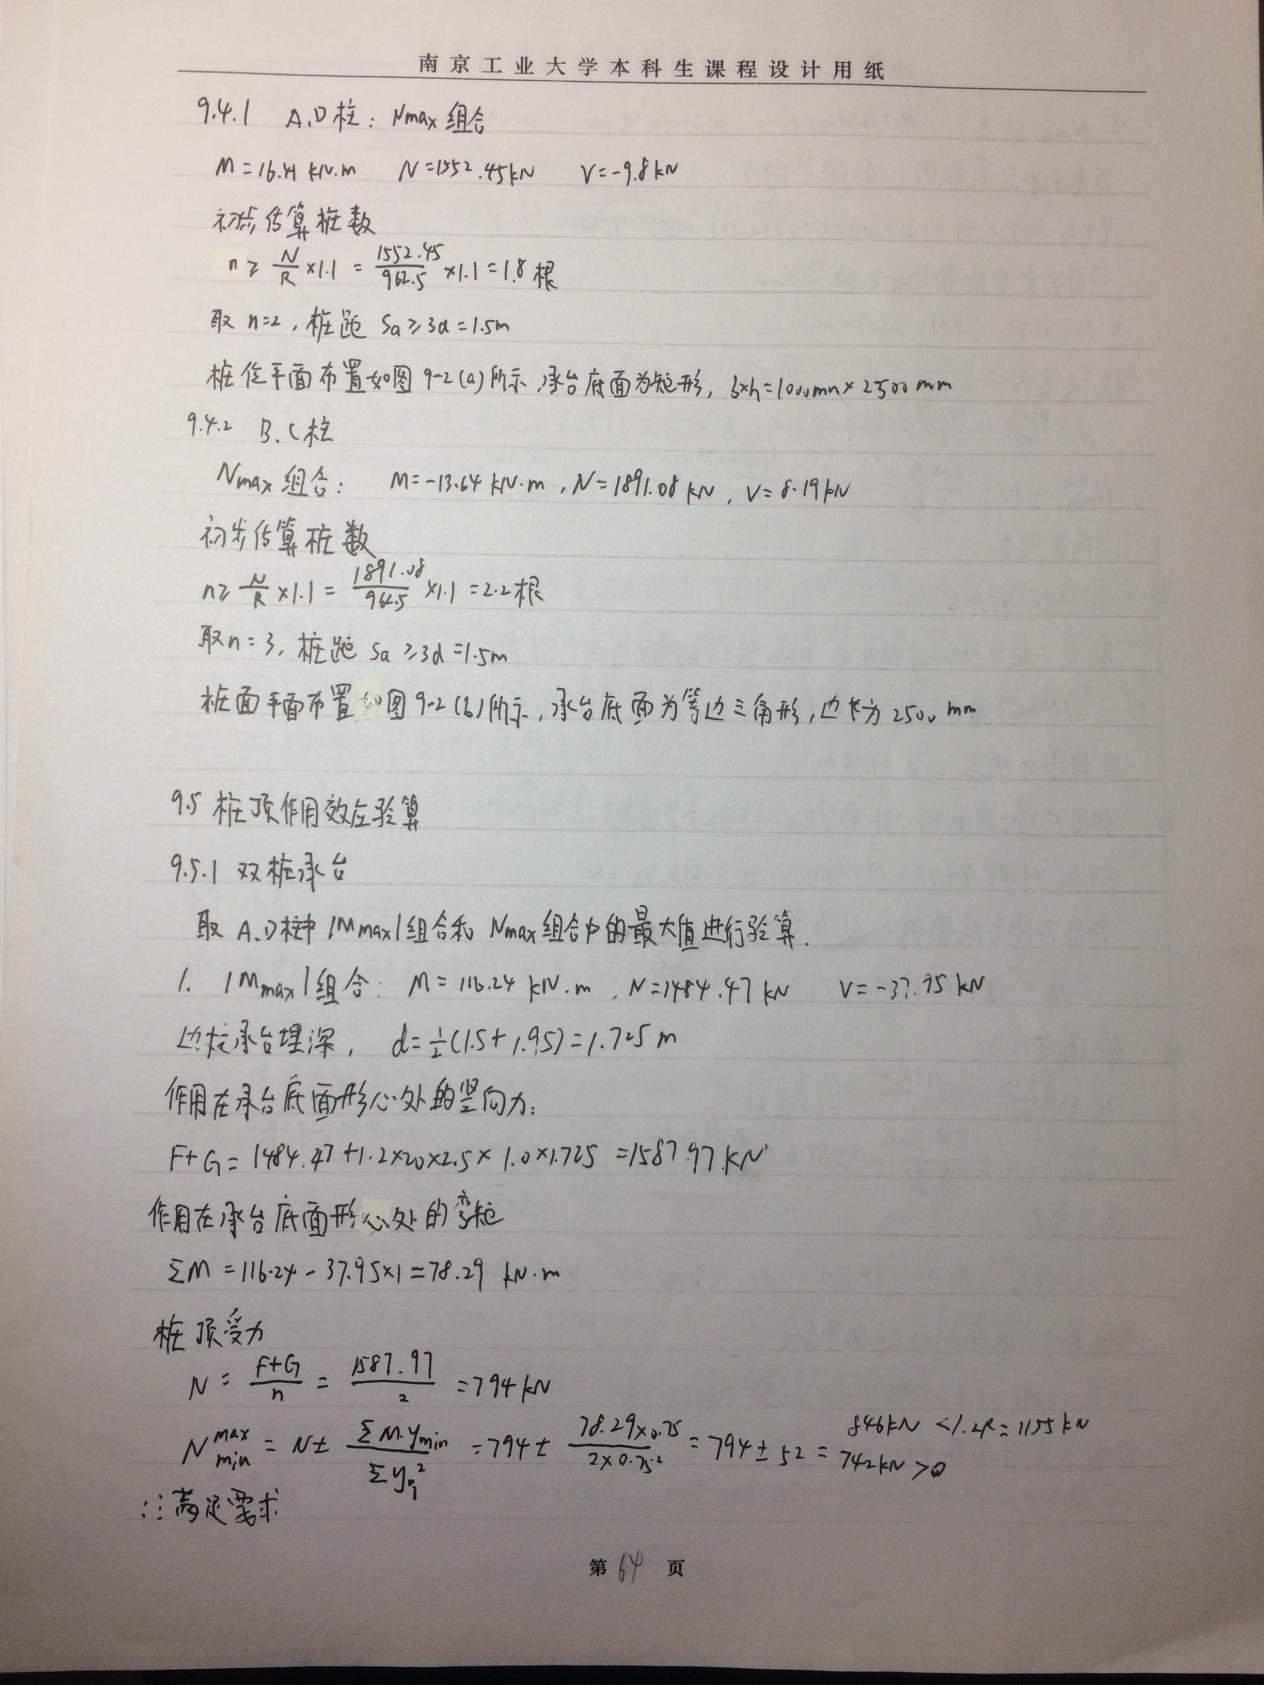 南京工业大学本科生课程设计用纸
9.4.1 A.D柱: Nmax 组合
M=16.41 kN.m N=1552.45kN V=-9.8kN
初步估算桩数
n≥ N/R ×1.1 = 1552.45/962.5 ×1.1 = 1.8 根
取 n=2, 桩距 Sa≥3d=1.5m
桩位平面布置如图 9-2(a)所示,承台底面为矩形, b×h=1000mm×2500mm
9.4.2 B.C柱
Nmax 组合: M=-13.64 kN·m, N=1891.08 kN, V=8.19kN
初步估算桩数
n≥ N/R ×1.1 = 1891.08/962.5 ×1.1 = 2.2根
取n=3, 桩距 Sa≥3d=1.5m
桩面平面布置如图9-2(b)所示,承台底面为等边三角形,边长为2500mm
9.5 桩顶作用效应验算
9.5.1 双桩承台
取 A.D柱中 |Mmax|组合和 Nmax组合中的最大值进行验算.
1. |Mmax|组合: M=116.24 kN.m, N=1484.47 kN V=-37.95 kN
边柱承台埋深, d=1/2(1.5+1.95)=1.725m
作用在承台底面形心处的竖向力:
F+G=1484.47+1.2×20×2.5×1.0×1.725=1587.97kN
作用在承台底面形心处的弯矩
ΣM=116.24-37.95×1=78.29 kN·m
桩顶受力
N= F+G/n = 1587.97/2 =794kN
N max min = N± ΣM·ymin/Σyi² =794± 78.29×0.75/2×0.75² =794±52= 846kN <1.2R=1155kN 742kN>0
∴满足要求
第 64 页